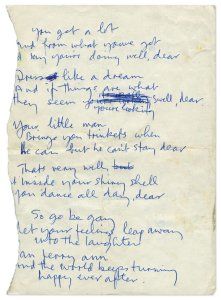 you got a lot
And from what you've got
I my you're doing well, dear
Dressed like a dream
And if things are what
they seem you're looking well, dear
Your little man
Brings you trinkets when
he can but he can't stay, dear
Thats very well
& inside your shiny shell
You dance all day, dear
So go be gay
let your feelings leap away
into the laughter
an perry ann
and the world keeps turning
happy ever after